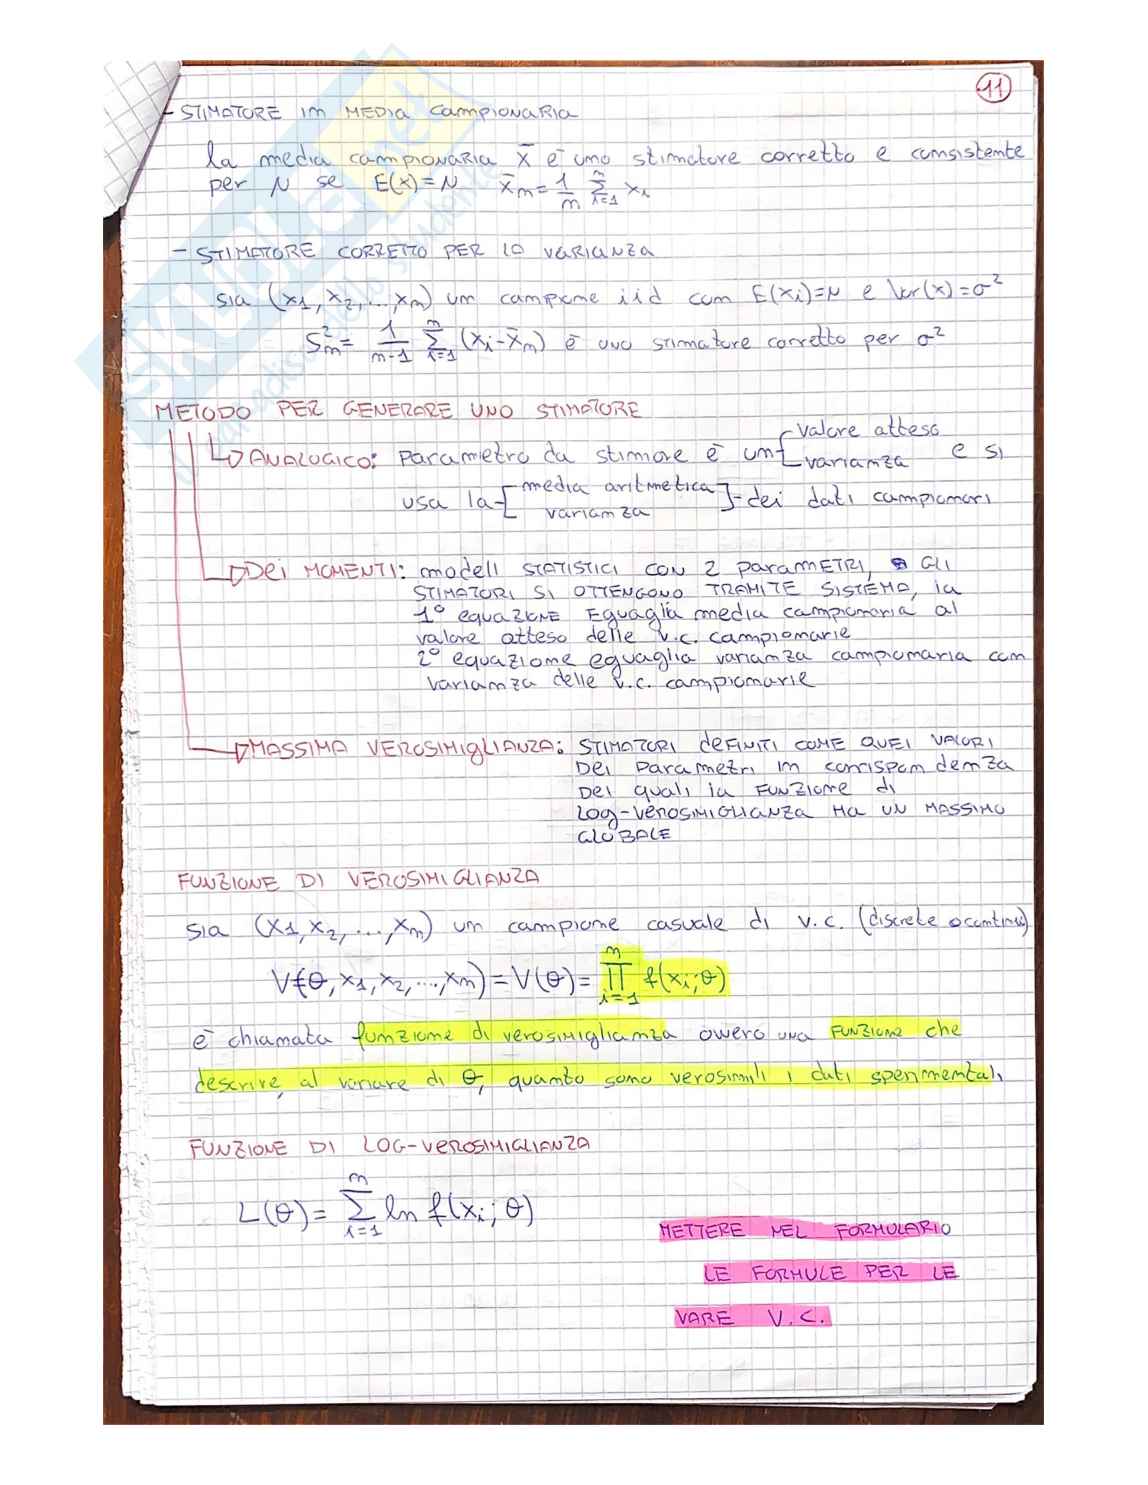 11
- STIMATORE IN MEDIA CAMPIONARIA
la media campionaria X̄ è uno stimatore corretto e consistente
per μ se E(x)=μ X̄n = 1/n Σ_{i=1}^{n} xi
- STIMATORE CORRETTO PER LA VARIANZA
sia (x1, x2, ..., xn) un campione iid con E(xi)=μ e Var(x)=σ²
S²n = 1/(n-1) Σ_{i=1}^{n} (xi - x̄n) è uno stimatore corretto per σ²
METODO PER GENERARE UNO STIMATORE
ANALOGICO: parametro da stimare è un [valore atteso / varianza] e si
usa la [media aritmetica / varianza] dei dati campionari
DEI MOMENTI: modelli STATISTICI CON 2 PARAMETRI, GLI
STIMATORI SI OTTENGONO TRAMITE SISTEMA, la
1° equazione Eguaglia media campionaria al
valore atteso delle v.c. campionarie
2° equazione eguaglia varianza campionaria con
varianza delle v.c. campionarie
MASSIMA VEROSIMIGLIANZA: STIMATORI DEFINITI COME QUEI VALORI
DEI parametri in corrispondenza
DEI quali la FUNZIONE di
LOG-VEROSIMIGLIANZA HA UN MASSIMO
GLOBALE
FUNZIONE DI VEROSIMIGLIANZA
sia (x1, x2, ..., xn) un campione casuale di v.c. (discrete o continue)
V(θ, x1, x2, ..., xn) = V(θ) = Π_{i=1}^{n} f(xi; θ)
è chiamata funzione di verosimiglianza ovvero una FUNZIONE che
descrive, al variare di θ, quanto sono verosimili i dati sperimentali
FUNZIONE DI LOG-VEROSIMIGLIANZA
L(θ) = Σ_{i=1}^{n} ln f(xi; θ)
METTERE NEL FORMULARIO
LE FORMULE PER LE
VARE V.C.